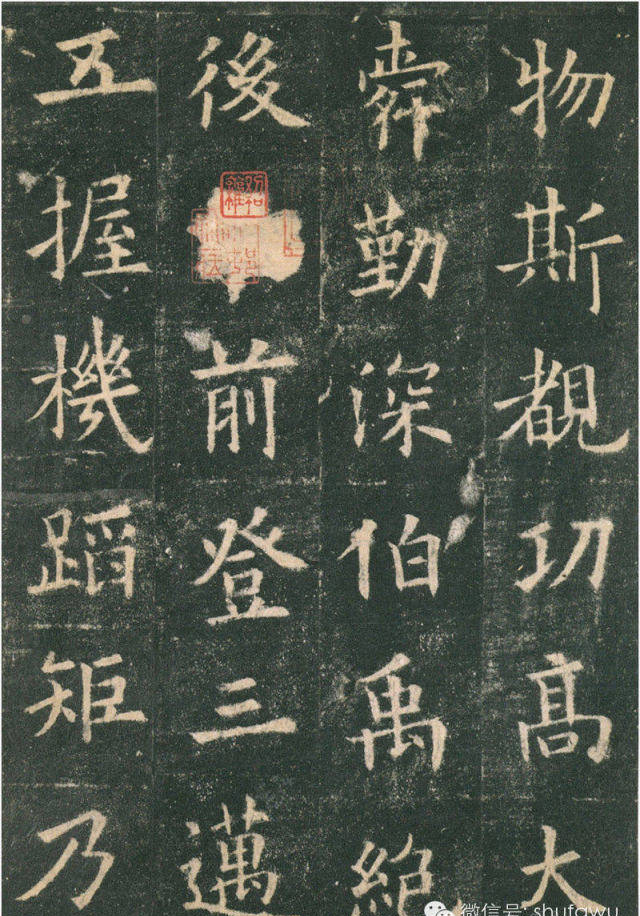 物斯覩功高大
舜勤深伯禹絶
後前登三邁
五握機蹈矩乃
微信号: shufawu